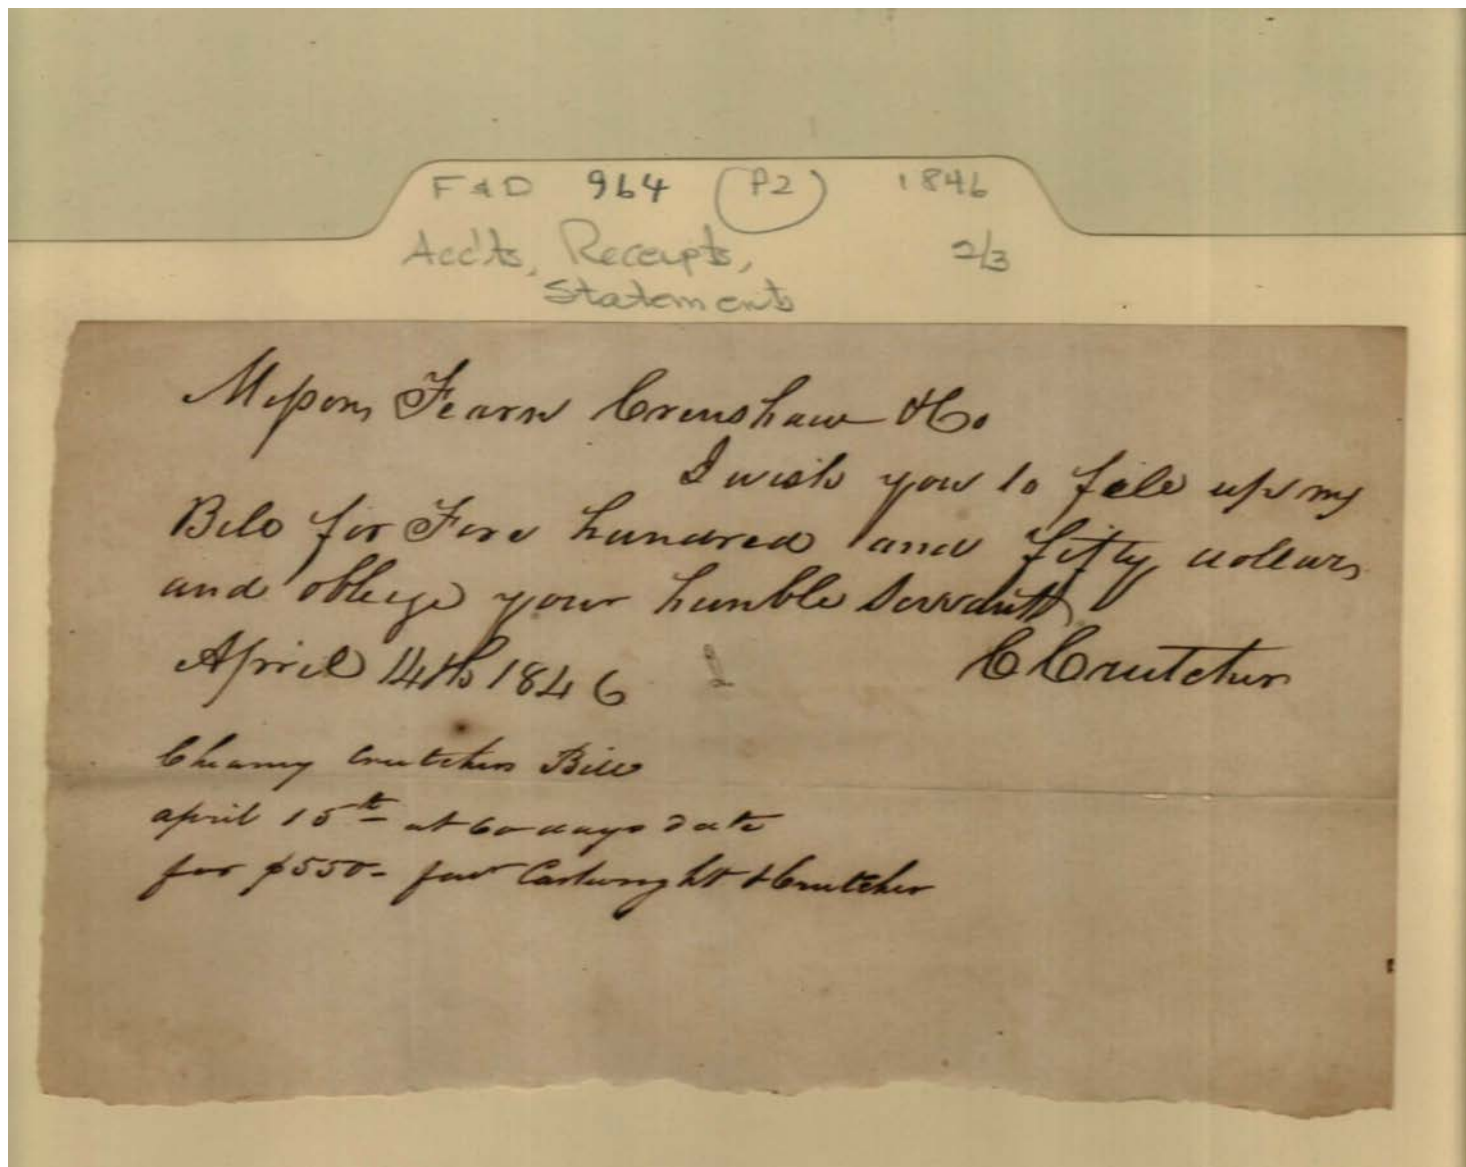 F & D 964 (P2) 1846
Acc'ts, Receipts, 2/3
Statements
Messrs Fearn Crenshaw & Co
I wish you to fill up my
Bill for Five hundred and fifty dollars
and oblige your humble Servant
April 14th 1846 C Crutcher
Crutchers Bill
april 15th at 60 days date
for $550- fav Cartwright & Crutcher